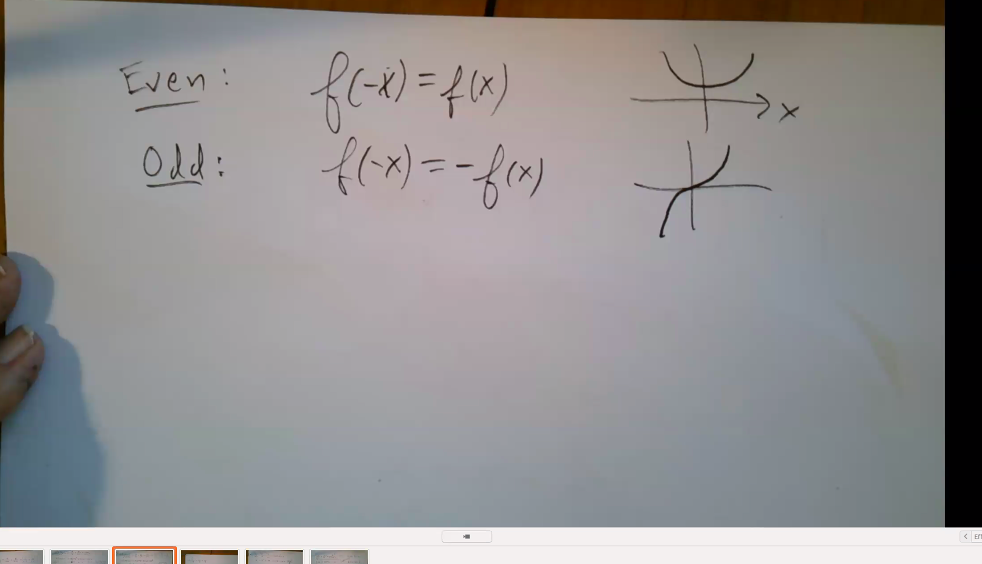 Even: f(-x) = f(x)
x
Odd: f(-x) = -f(x)